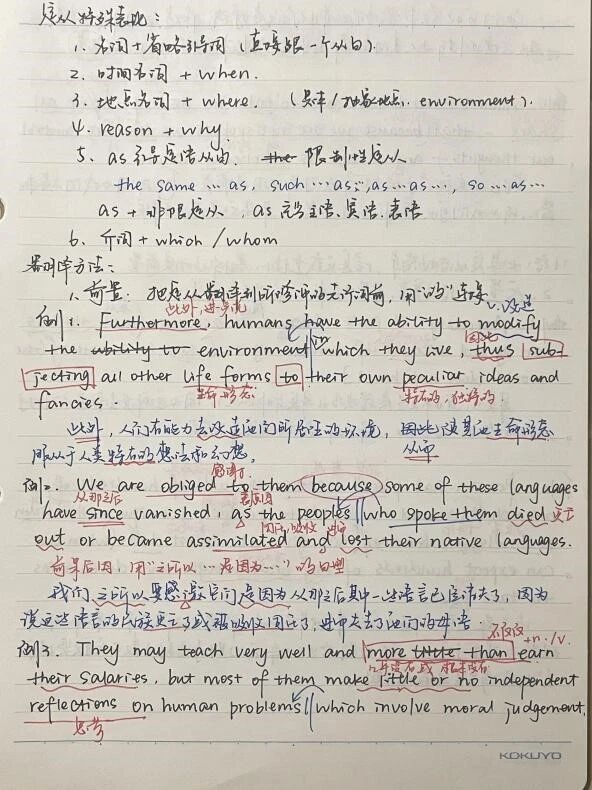 定从特殊表现：
1、名词+省略引导词（直接跟一个从句）.
2. 时间名词 + when.
3. 地点名词 + where. （具体/抽象地点. environment）.
4. reason + why.
5、as 引导定语从句. the 限制性定从
the same … as, such … as…, as…as…, so…as…
as + 非限定从, as 充当主语、宾语、表语
6. 介词 + which / whom
翻译方法：
1、前置：把定从翻译到所修饰的先行词前，用“的”连接
此外，进一步说 v.改造
例1. Furthermore, humans have the ability to modify
the ability to environment in which they live, thus sub-
因此
jecting all other life forms to their own peculiar ideas and
生命形态 特有的，独特的
fancies
此外，人们有能力去改造他们所居住的环境，因此使其他生命形态
从而
服从于人类特有的想法和幻想。
感谢
例2. We are obliged to them because some of these languages
从那之后 表原因
have since vanished, as the peoples who spoke them died 死亡
同化，吸收
out or became assimilated and lost their native languages.
前果后因，用“之所以…是因为……”的句型
我们之所以要感激他们是因为从那之后其中一些语言已经消失了，因为
说这些语言的民族死亡了或被吸收同化了，进而失去了他们的母语.
不仅仅 +n./v.
例3. They may teach very well and more little than earn
几乎没有或根本没有
their salaries, but most of them make little or no independent
reflections on human problems which involve moral judgement.
思考
KOKUYO